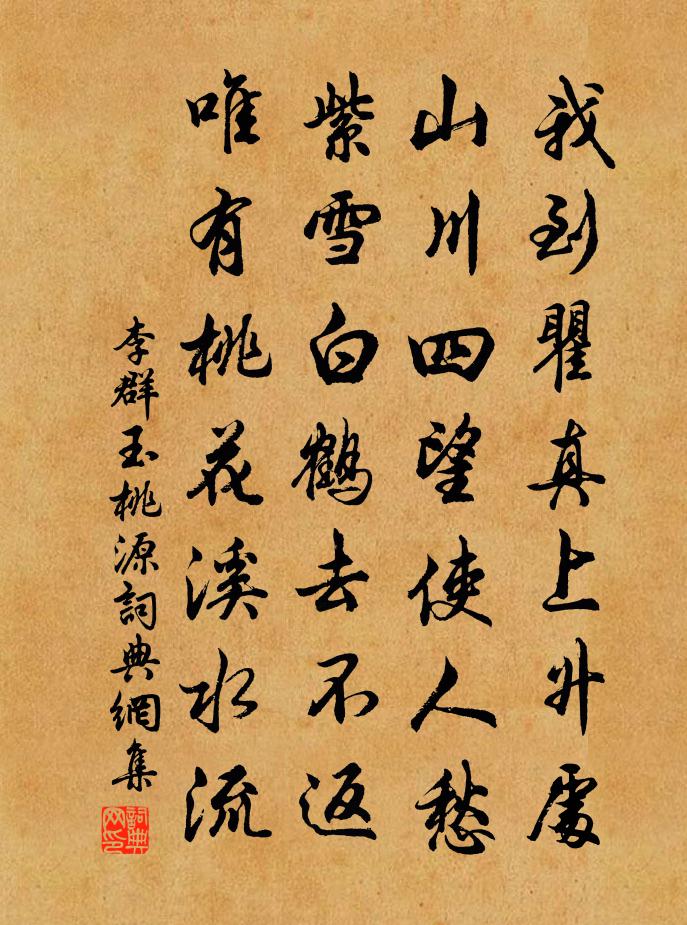 我到瞿真上升處
山川四望使人愁
紫雪白鶴去不返
唯有桃花溪水流
李群玉桃源詞典網集
詞典
网印